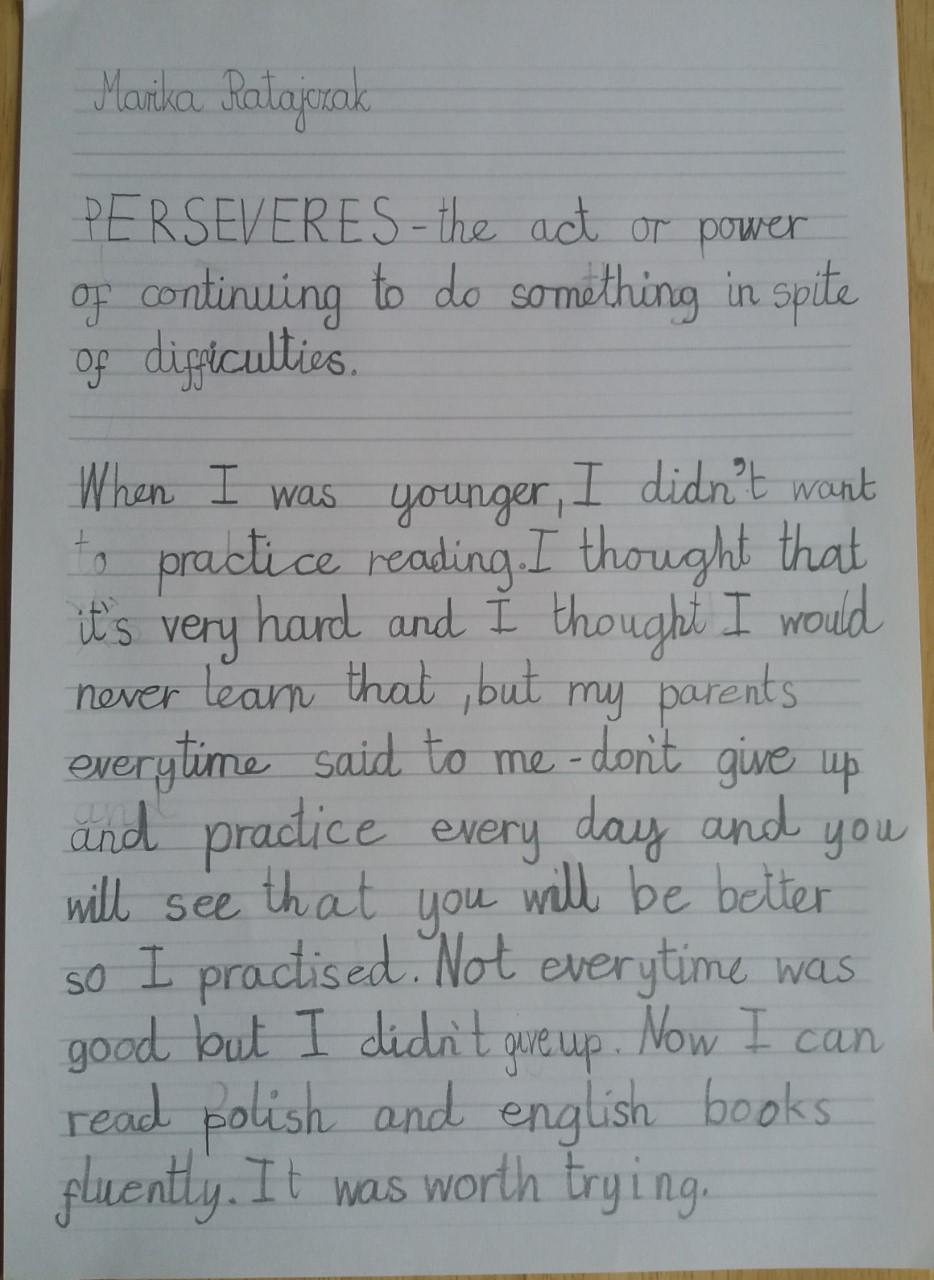 Marika Ratajczak
PERSEVERES - the act or power
of continuing to do something in spite
of difficulties.
When I was younger, I didn't want
to practice reading. I thought that
it's very hard and I thought I would
never learn that ,but my parents
everytime said to me - don't give up
and practice every day and you
will see that you will be better
so I practised. Not everytime was
good but I didn't give up. Now I can
read polish and english books
fluently. It was worth trying.